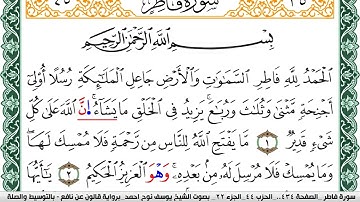 سورة فاطر
بِسْمِ اللَّهِ الرَّحْمَٰنِ الرَّحِيمِ
الْحَمْدُ لِلَّهِ فَاطِرِ السَّمَٰوَٰتِ وَالْأَرْضِ جَاعِلِ الْمَلَٰٓئِكَةِ رُسُلًا أُو۟لِىٓ
أَجْنِحَةٍ مَّثْنَىٰ وَثُلَٰثَ وَرُبَٰعَ يَزِيدُ فِى الْخَلْقِ مَا يَشَآءُ اِنَّ اللَّهَ عَلَىٰ كُلِّ
شَىْءٍ قَدِيرٌ ١ مَّا يَفْتَحِ اللَّهُ لِلنَّاسِ مِن رَّحْمَةٍ فَلَا مُمْسِكَ لَهَا
وَمَا يُمْسِكْ فَلَا مُرْسِلَ لَهُۥ مِنۢ بَعْدِهِۦ وَهْوَ الْعَزِيزُ الْحَكِيمُ ٢ يَٰٓأَيُّهَا
سورة فاطر - الصفحة ٤٣٤ - الحزب ٤٤ - الجزء ٢٢ - بصوت الشيخ يوسف نوح احمد - برواية قالون عن نافع - بالتوسيط والصلة